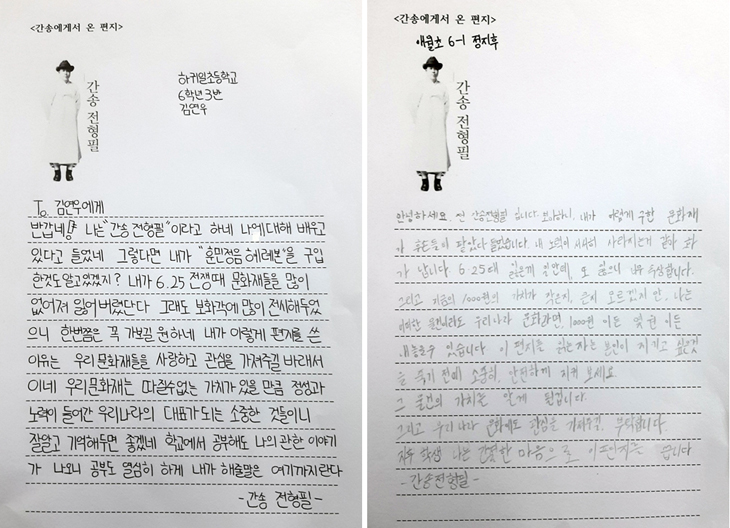 <간송에게서 온 편지>
하귀일초등학교
6학년 3반
김연우
간송 전형필
To. 김연우에게
반갑네! 나는 "간송 전형필"이라고 하네 나에대해 배우고
있다고 들었네 그렇다면 내가 "훈민정음 해례본"을 구입
한것도 알고있겠지? 내가 6.25 전쟁때 문화재들을 많이
없어져 잃어버렸단다 그래도 보화각에 많이 전시해두었
으니 한번쯤은 꼭 가보길 원하네 내가 이렇게 편지를 쓴
이유는 우리문화재들을 사랑하고 관심을 가져주길 바래서
이네 우리문화재는 따질수없는 가치가 있을 만큼 정성과
노력이 들어간 우리나라의 대표가 되는 소중한 것들이니
잘알고 기억해두면 좋겠네 학교에서 공부해도 나의 관한 이야기
가 나오니 공부도 열심히 하게 내가 해줄말은 여기까지란다
-간송 전형필-
<간송에게서 온 편지>
애월초 6-1 정지후
간송 전형필
안녕하세요. 전 간송전형필 입니다. 내가 어렵게 구한 문화재
팔았다 내 노력이 서서히 사라지는거 같아 화
가 납니다. 6.25때 잃은게 많은데, 또 잃으니 너무 속상합니다.
그리고 지금의 1000원의 가치가 작은지, 큰지 모르겠지만, 나는
우리나라 문화라면, 1000원 이든 억원 이든
있습니다 이 편지를 읽는자는 본인이 지키고 싶은것
을 죽기 전에 소중히, 안전하게 지켜 보세요.
그 물건의 가치는 알게 될겁니다.
그리고 우리나라 문화에도 관심을 가져주길, 부탁합니다.
나는 간절한 마음으로 이 편지를 씁니다
-간송전형필-